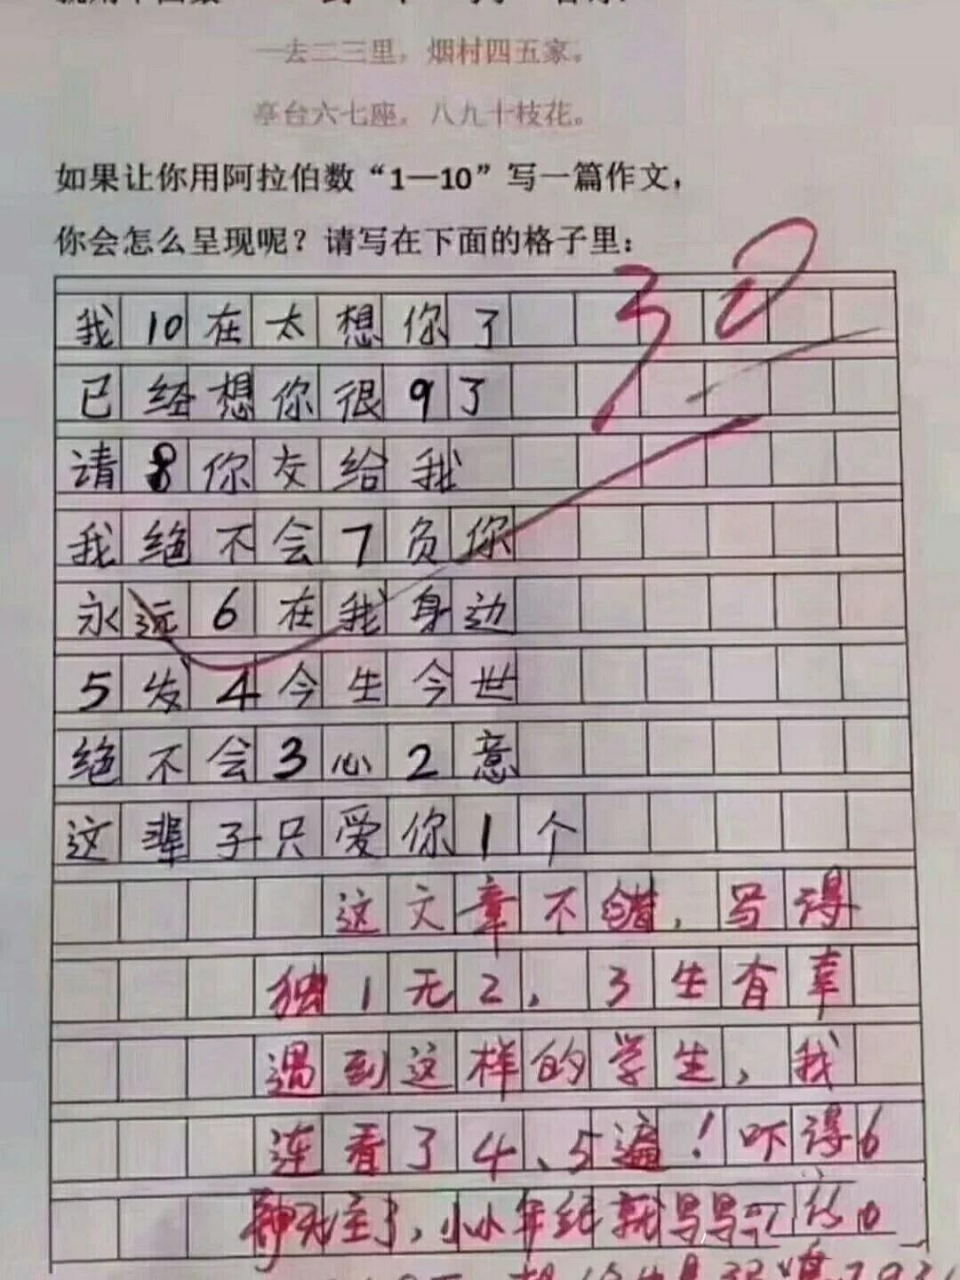 一去二三里，烟村四五家。
亭台六七座，八九十枝花。
如果让你用阿拉伯数“1—10”写一篇作文，
你会怎么呈现呢？请写在下面的格子里：
我10在太想你了
已经想你很9了
请8你交给我
我绝不会7负你
永远6在我身边
5发4今生今世
绝不会3心2意
这辈子只爱你1个
这文章不错，写得
独1无2，3生有幸
遇到这样的学生，我
连看了4、5遍！吓得6
神无主了，小小年纪就